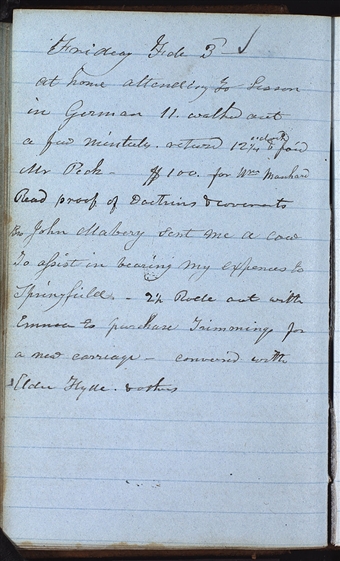 Friday Feb 3d
at home attending to Lesson
in German 11. walked out
a few minutes. return 12¼ o clock & paid
Mr Peck - $100. for Wm Manhard
Read proof of Doctrins & covenants
Bro John Malbery sent me a cow
To assist in bearing my expences to
Springfield. - 2½ Rode out with
Emma to purchase Trimmings for
a new carriage - convered with
Elder Hyde. & others